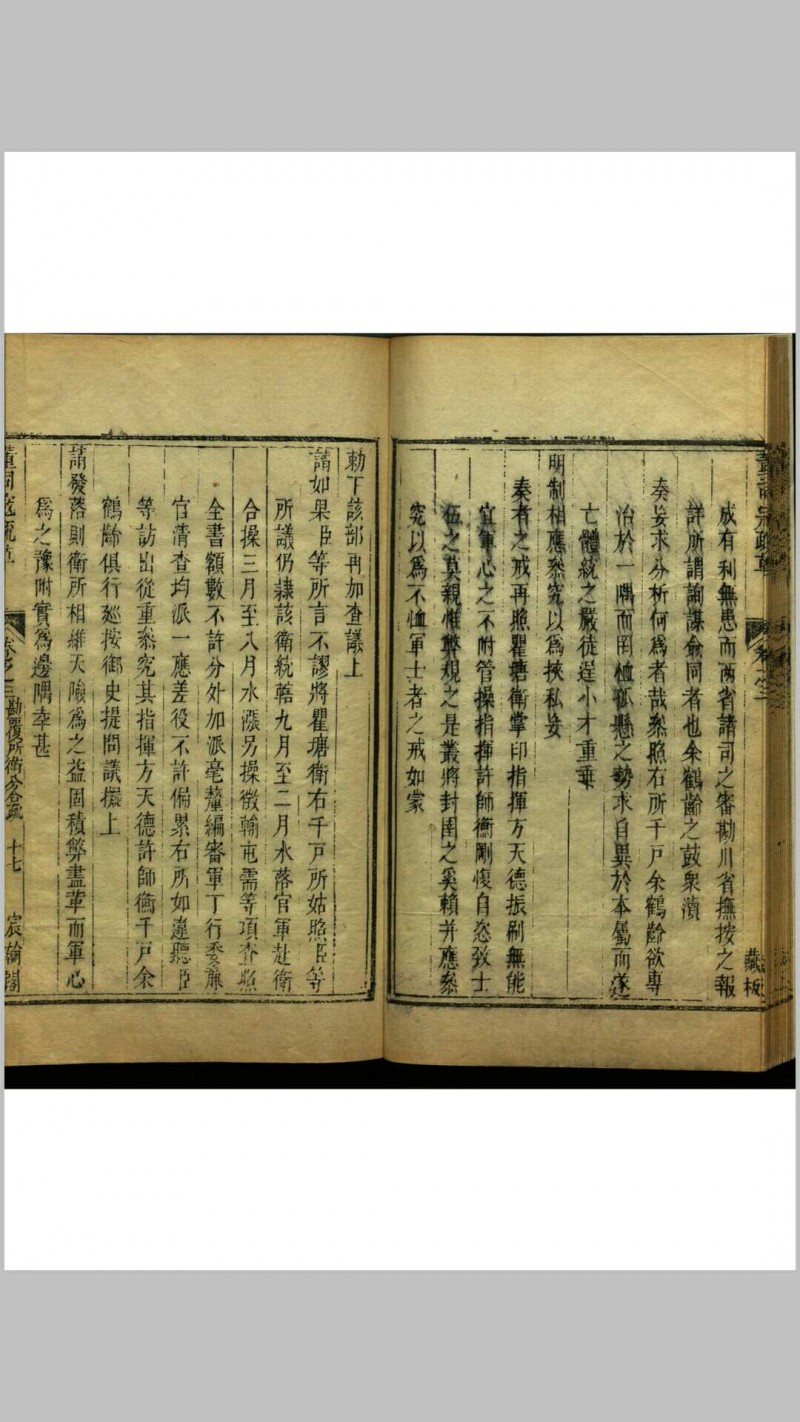 藏板
成有利無患而兩省諸司之審勘川省撫按之報
詳所謂詢謀僉同者也余鶴齡之鼓衆瀆
奏妄求分析何為者哉叅照右所千戶余鶴齡欲專
治於一隅而罔恤孤懸之勢求自異於本屬而遂
亡體統之嚴徒逞小才重乖
明制相應叅究以為挾私妄
奏者之戒再照瞿塘衛掌印指揮方天德振刷無能
宜軍心之不附管操指揮許師衡剛愎自恣致士
伍之莫親惟弊規之是叢將封圉之奚賴并應叅
究以為不恤軍士者之戒如蒙
勅下該部再加查議上
請如果臣等所言不謬將瞿塘衛右千戶所姑照臣等
所議仍隸該衛統轄九月至二月水落官軍赴衛
合操三月至八月水漲另操徵輸屯需等項查照
全書額數不許分外加派毫釐編審軍丁行委廉
官清查均派一應差役不許偏累右所如違聽臣
等訪出從重叅究其指揮方天德許師衡千戶余
鶴齡俱行廵按御史提問議擬上
請發落則衛所相維天險為之益固積弊盡革而軍心
為之豫附實為邊隅幸甚
勘覆所衛分合疏 十七 宸翰閣